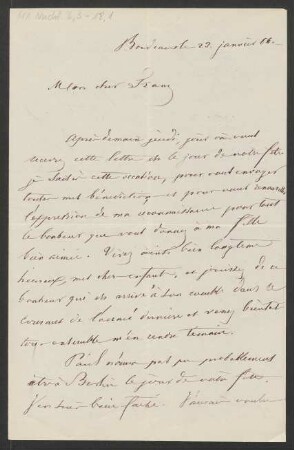 Bordeaux le 23. janvier 66.
Mon cher Franz
Après demain jeudi, jour où vous
recevrez cette lettre est le jour de votre fête
je saisis cette occasion, pour vous envoyer
toutes mes bénédictions et pour vous renouveler
l'expression de ma reconnaissance pour tout
le bonheur que vous donnez à ma fille
bien aimée. Vivez ainsi bien longtemps
heureux, mes chers enfants, et jouissez de ce
bonheur qui est arrivé à son comble dans le
courant de l'année dernière et venez bientôt
tous ensemble
Paul n'aura pas pu probablement
être à Berlin le jour de votre fête.
J'en suis bien fâchée. J'aurais voulu